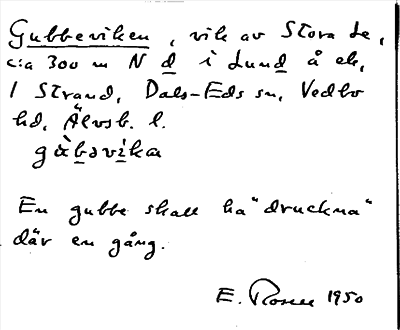 Gubbeviken, vik av Stora Le,
c:a 300 m N d i Lund å ek,
1 Strand, Dals-Eds sn, Vedbo
hd, Älvsb. l.
gùbəvika
En gubbe skall ha "druckna"
där en gång.
E. Rosell 1950